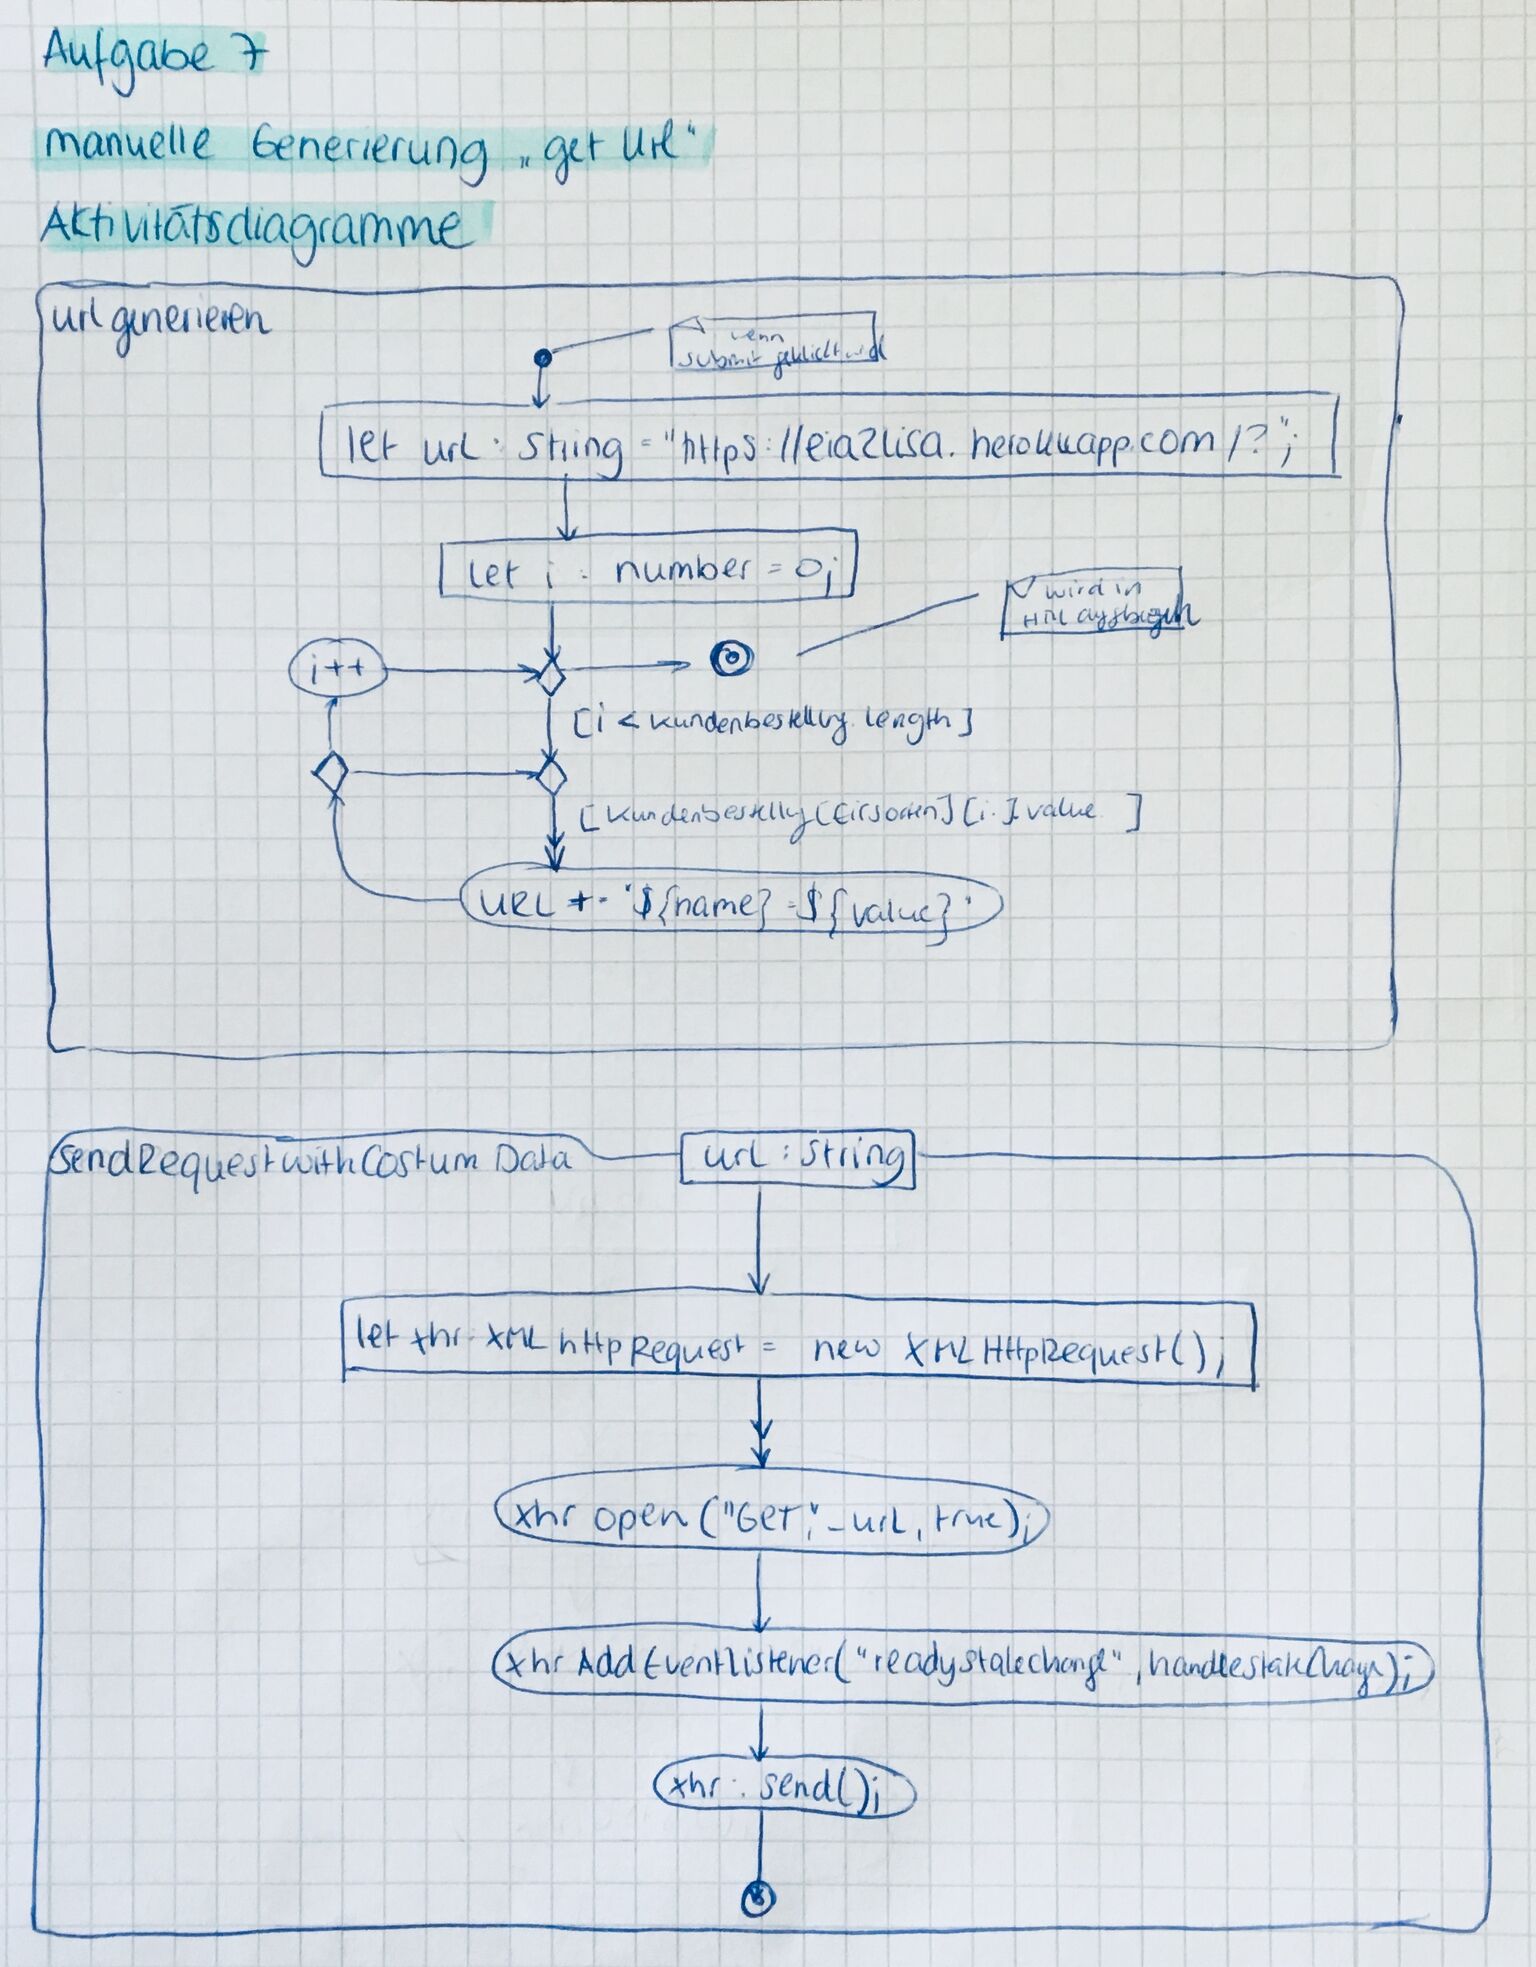 Aufgabe 7
manuelle Generierung „get Url“
Aktivitätsdiagramme
url generieren
wenn
submit geklickt wird
let url : String = "https://eia2lisa.herokuapp.com/?";
let i : number = 0;
wird in
i++
[i < kundenbestellung.length]
[kundenbestellung[Eissorten][i].value ]
URL += `${name}=${value}`
SendRequestwithCostum Data
url : String
let xhr: XMLhttpRequest = new XMLHttpRequest();
xhr open ("Get", _url, true);
xhr AddEventListener("readystatechange", handlestateChange);
xhr . send();